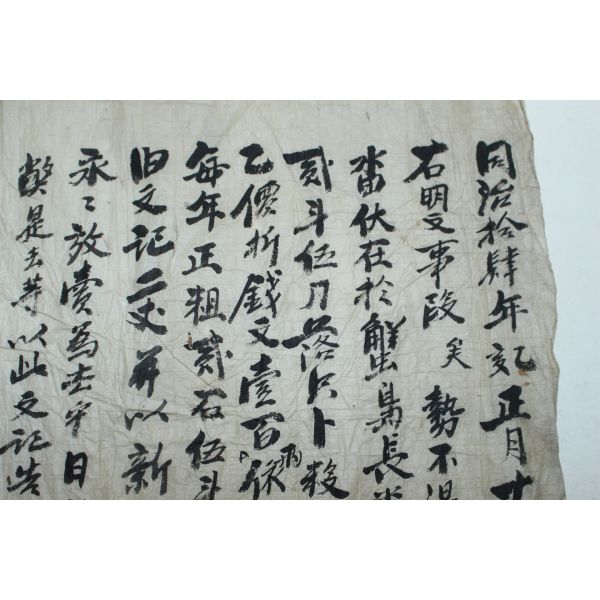 同治拾肆年乙亥正月廿
右明文事段矣勢不得
畓伏在於蟹島長坐
貳斗伍刀落只卜數
乙價折錢文壹百伍兩
每年正粗貳石伍斗
旧文記二丈并以新
永〻放賣為去乎日
弊是去等以此文記告